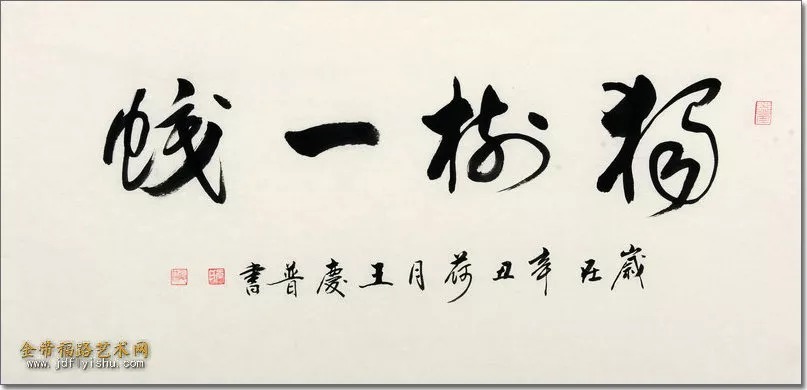 獨樹一幟
歲在辛丑荷月王慶普書
金带福路艺术网
www.jdflyishu.com